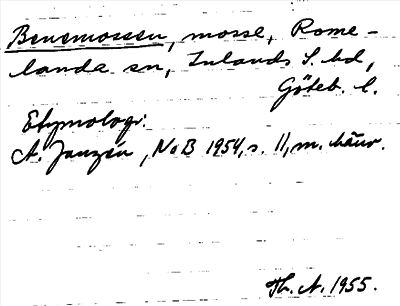 Benemossen, mosse, Rome-
landa sn, Inlands S. hd,
Göteb. l.
Etymologi.
A. Janzén, NoB 1954, s. 11, m. hänv.
Th. A. 1955.